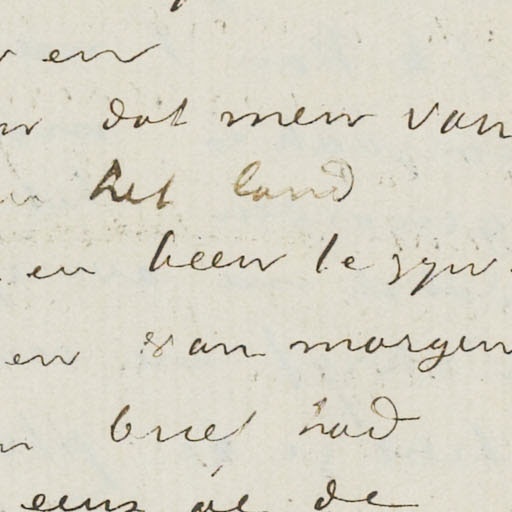 en
dat men van
het land
en been te zyn.
en van morgen
brief had
eens of de